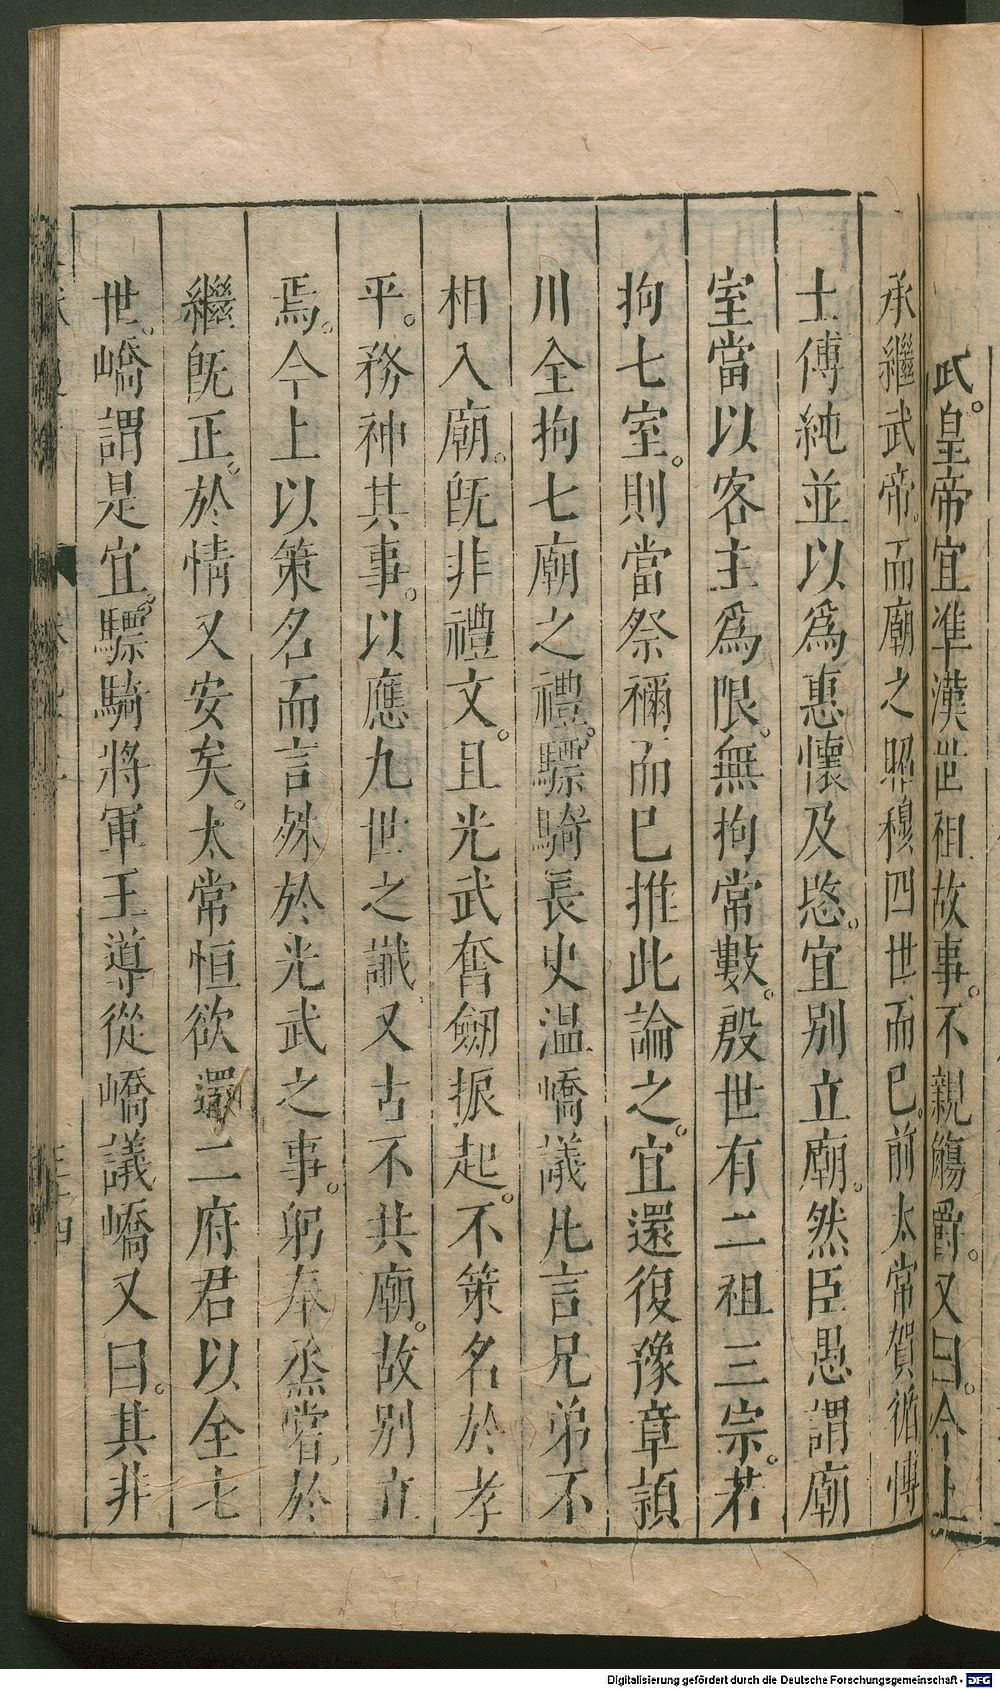 武皇帝宜準漢世祖故事不親觴爵又曰今上
承繼武帝而廟之昭穆四世而已前太常賀循博
士傅純並以爲惠懷及愍宜别立廟然臣愚謂廟
室當以客主爲限無拘常數殷世有二祖三宗若
拘七室則當祭禰而已推此論之宜還復豫章頴
川全拘七廟之禮驃騎長史溫嶠議凡言兄弟不
相入廟旣非禮文且光武奮劒振起不策名於孝
平務神其事以應九世之讖又古不共廟故别立
焉今上以策名而言殊於光武之事躬奉烝嘗於
繼旣正於情又安矣太常恒欲還二府君以全七
世嶠謂是宜驃騎將軍王導從嶠議嶠又曰其非
Digitalisierung gefördert durch die Deutsche Forschungsgemeinschaft - DFG